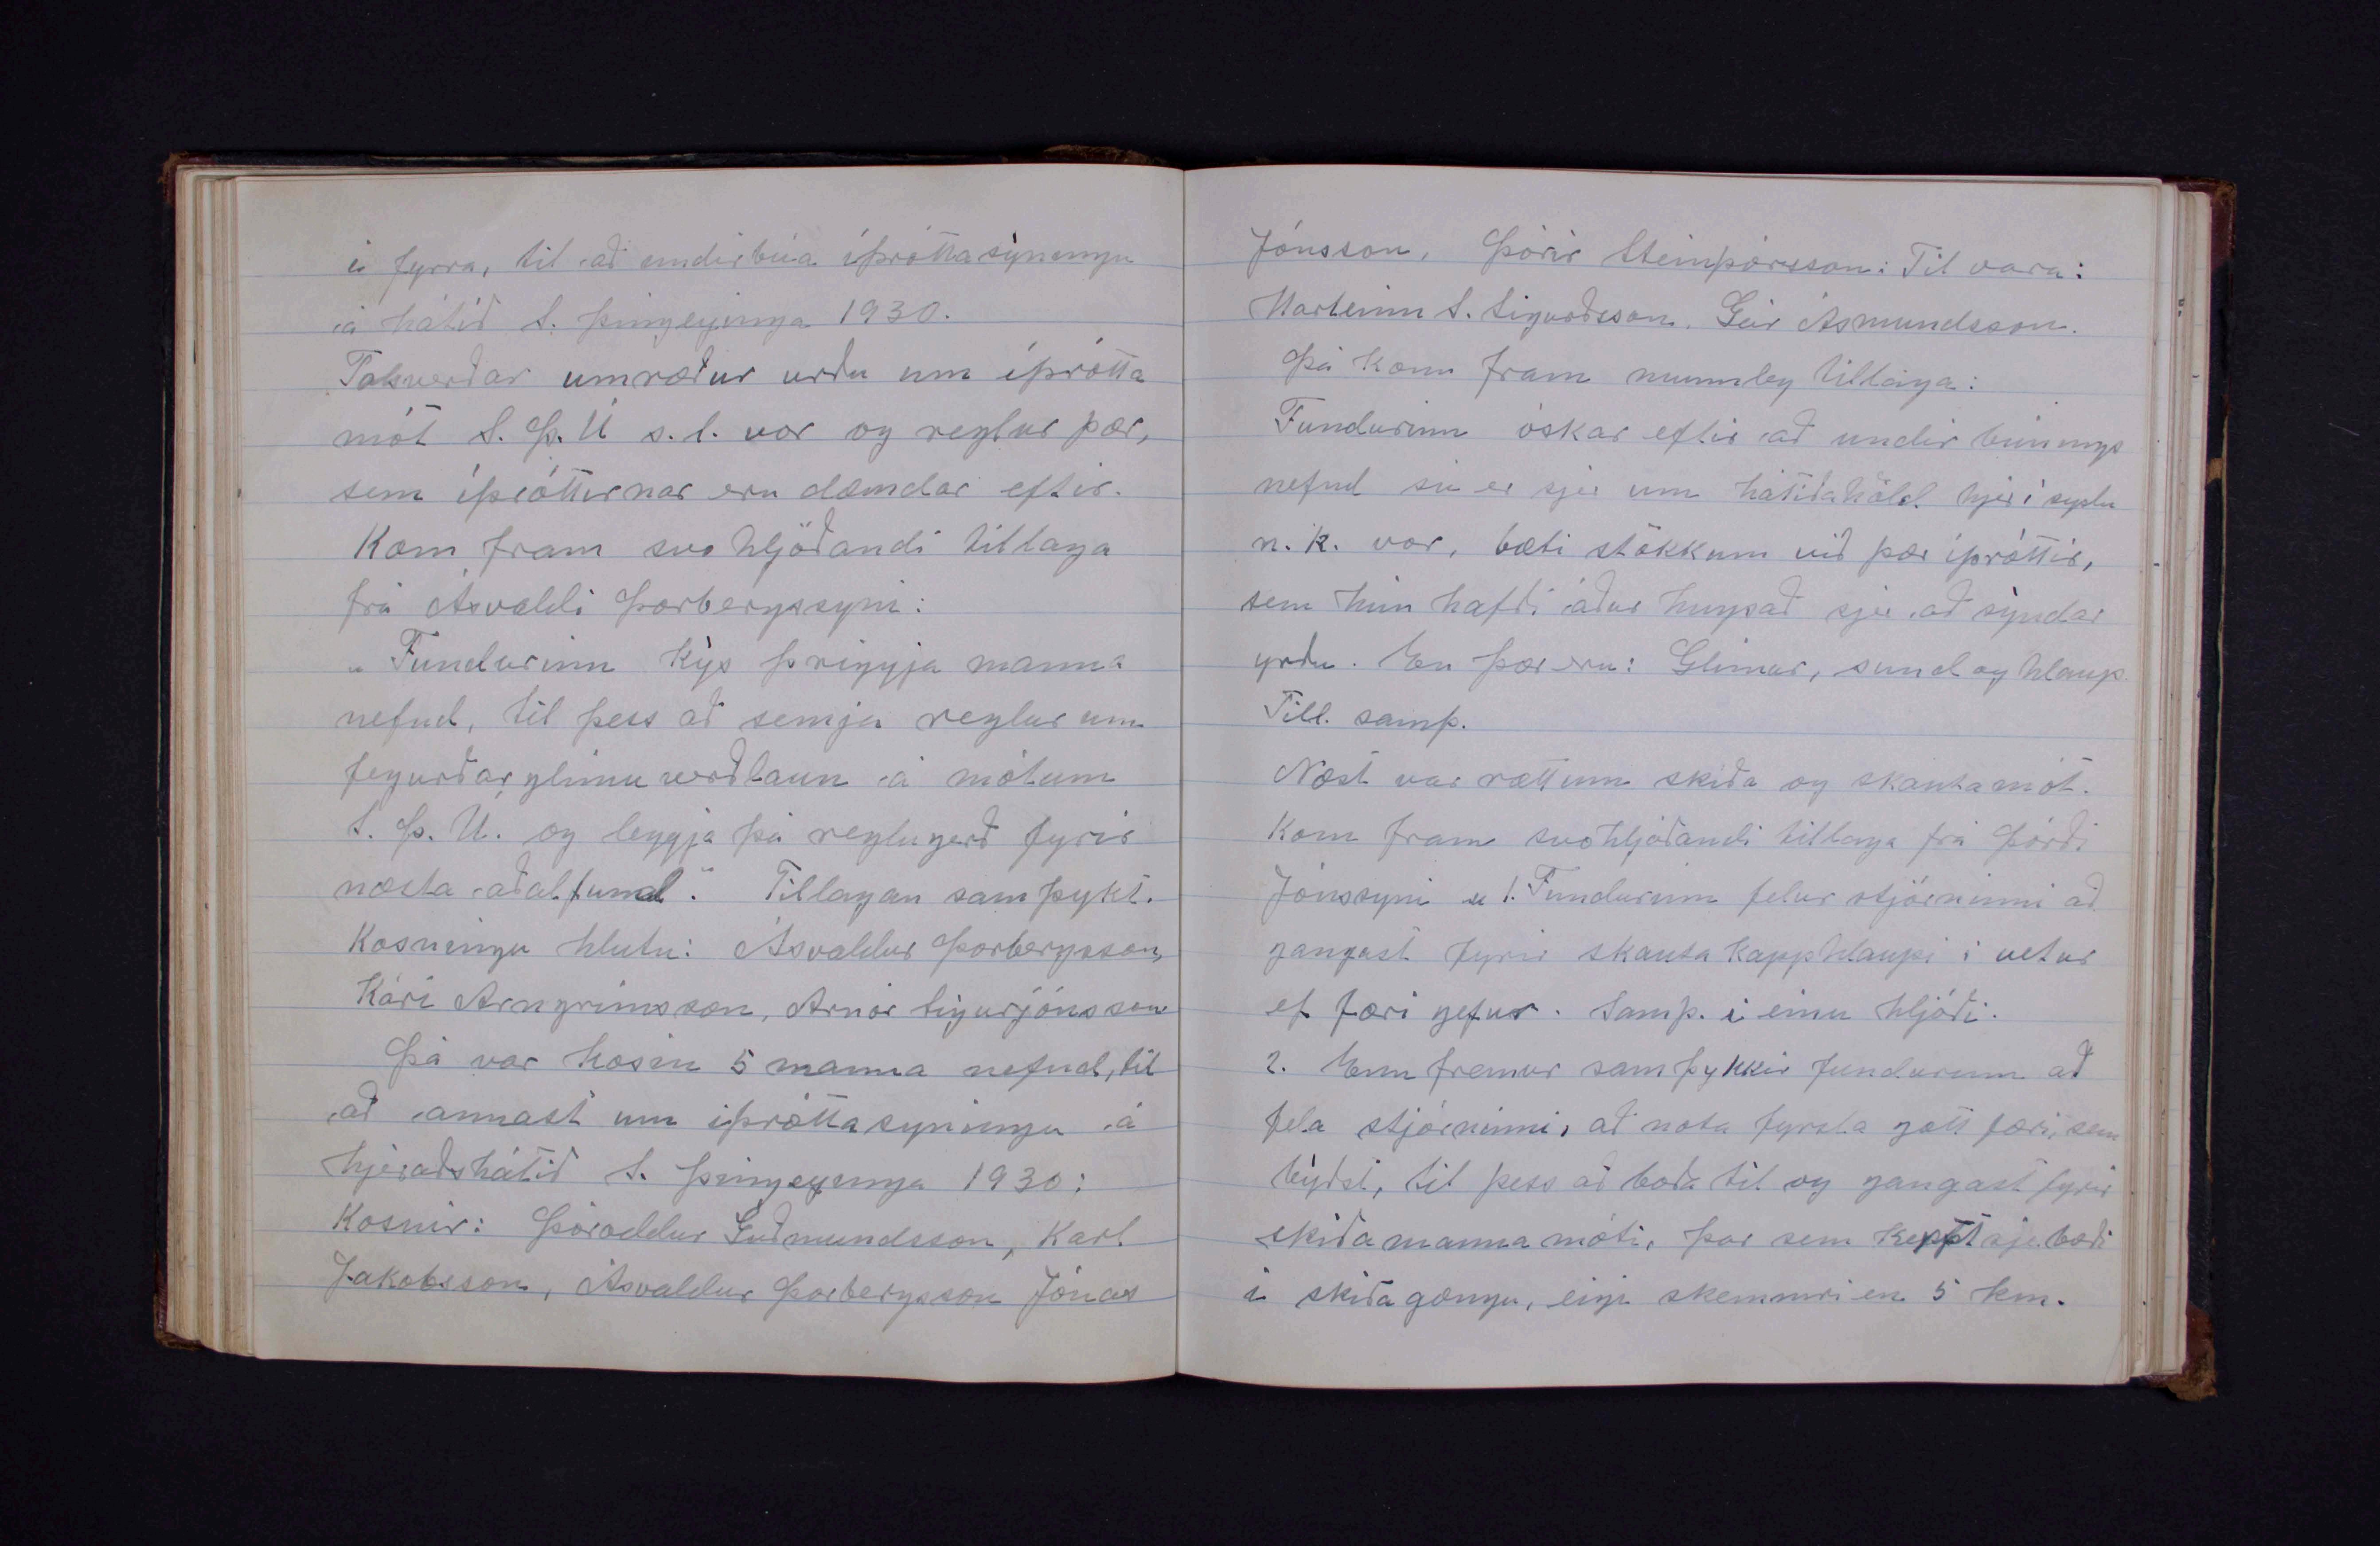 í fyrra, til að undirbúa íþróttasýningu
á hátíð S. Þingeyinga 1930.
Talsverðar umræður urðu um íþrótta
mót S. Þ. U s.l. vor og reglur þær,
sem íþróttirnar eru dæmdar eftir.
Kom fram svo hljóðandi tillaga
frá Ásvaldi Þorbergssyni:
„Fundurinn kýs þriggja manna
nefnd, til þess að semja reglur um
fegurðarglímuverðlaun á mótum
S. Þ. U. og leggja þá reglugerð fyrir
næsta aðalfund“. Tillagan samþykt.
Kosningu hlutu: Ásvaldur Þorbergsson,
Kári Arngrímsson, Arnór Sigurjónsson
Þá var kosin 5 manna nefnd, til
að annast um íþróttasýningu á
hjeraðshátíð S. Þingeyinga 1930:
Kosnir: Þóroddur Guðmundsson, Karl
Jakobsson, Ásvaldur Þorbergsson Jónas
Jónsson, Þórir Steinþórsson: Til vara:
Marteinn S. Sigurðsson. Geir Ásmundsson.
Þá kom fram munnleg tillaga:
Fundurinn óskar eftir að undir búnings
nefnd sú er sjer um hátíðahöld hjer í sýslu
n.k. vor, bæti stökkum við þær íþróttir,
sem hún hafði áður hugsað sjer að sýndar
yrðu. En þær eru: Glímur, sund og hlaup.
Till. samþ.
Næst var rætt um skíða og skautamót.
Kom fram svohljóðandi tillaga frá Þórði
Jónssyni „1. Fundurinn felur stjórninni að
gangast fyrir skauta kapphlaupi í vetur
ef færi gefur. Samþ. í einu hljóði.
2. Enn fremur samþykkir fundurinn að
fela stjórninni, að nota fyrsta gott færi, sem
býðst, til þess að boða til og gangast fyrir
skíðamannamóti, þar sem keppt sje bæði
í skíðagöngu, eigi skemmri en 5 km.